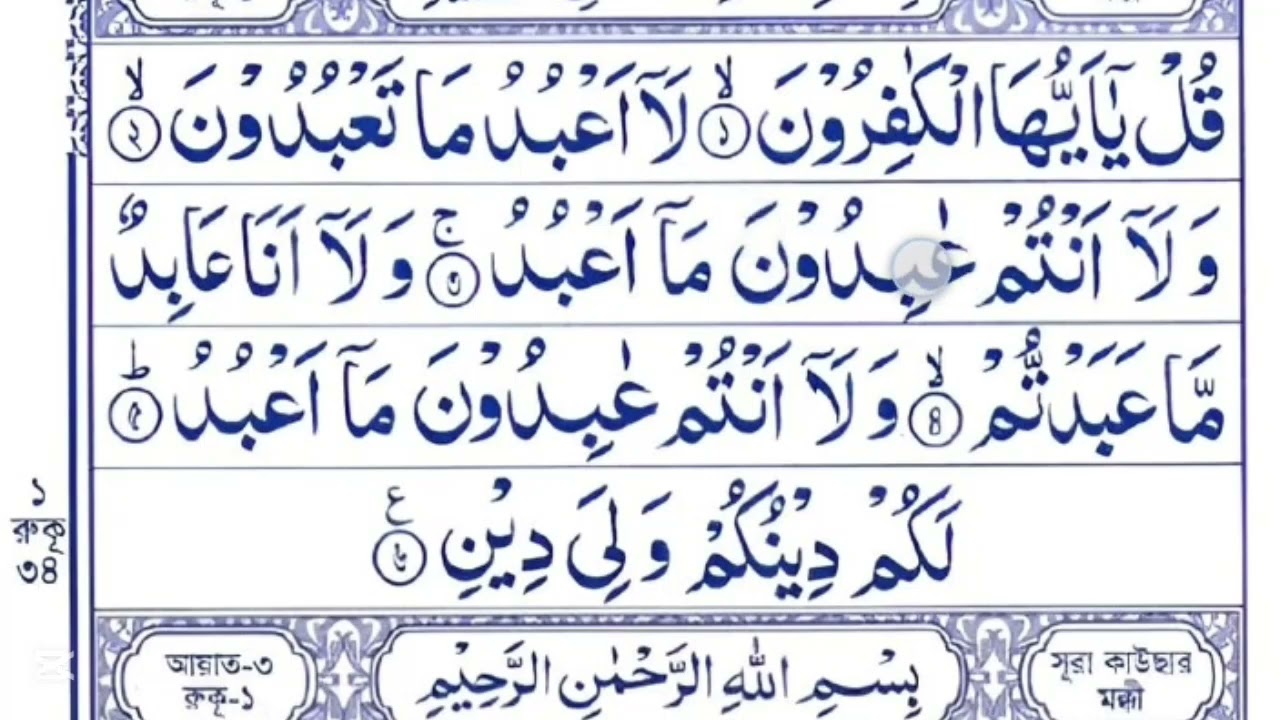 قُلْ يٰۤاَيُّهَا الْكٰفِرُوْنَ ۙ﴿১﴾ لَاۤ اَعْبُدُ مَا تَعْبُدُوْنَ ۙ﴿২﴾
وَلَاۤ اَنْتُمْ عٰبِدُوْنَ مَاۤ اَعْبُدُ ۚ﴿৩﴾ وَلَاۤ اَنَا عَابِدٌ
مَّا عَبَدْتُّمْ ۙ﴿৪﴾ وَلَاۤ اَنْتُمْ عٰبِدُوْنَ مَاۤ اَعْبُدُ ؕ﴿৫﴾
لَكُمْ دِيْنُكُمْ وَلِىَ دِيْنِ ﴿৬﴾ ع
১
রুকূ
৩৪
সূরা কাউছার
মক্কী
بِسْمِ اللهِ الرَّحْمٰنِ الرَّحِيْمِ
আয়াত-৩
রুকূ-১